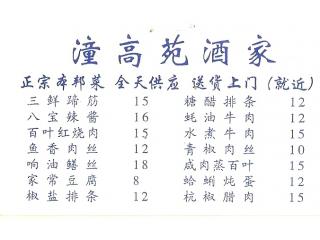 潼高苑酒家
正宗本邦菜 全天供应 送货上门（就近）
三鲜蹄筋 15 糖醋排条 12
八宝辣酱 16 蚝油牛肉 12
百叶红烧肉 15 水煮牛肉 15
鱼香肉丝 12 青椒肉丝 10
响油鳝丝 18 咸肉蒸百叶 15
家常豆腐 8 蛤蜊炖蛋 12
椒盐排条 12 杭椒腊肉 15